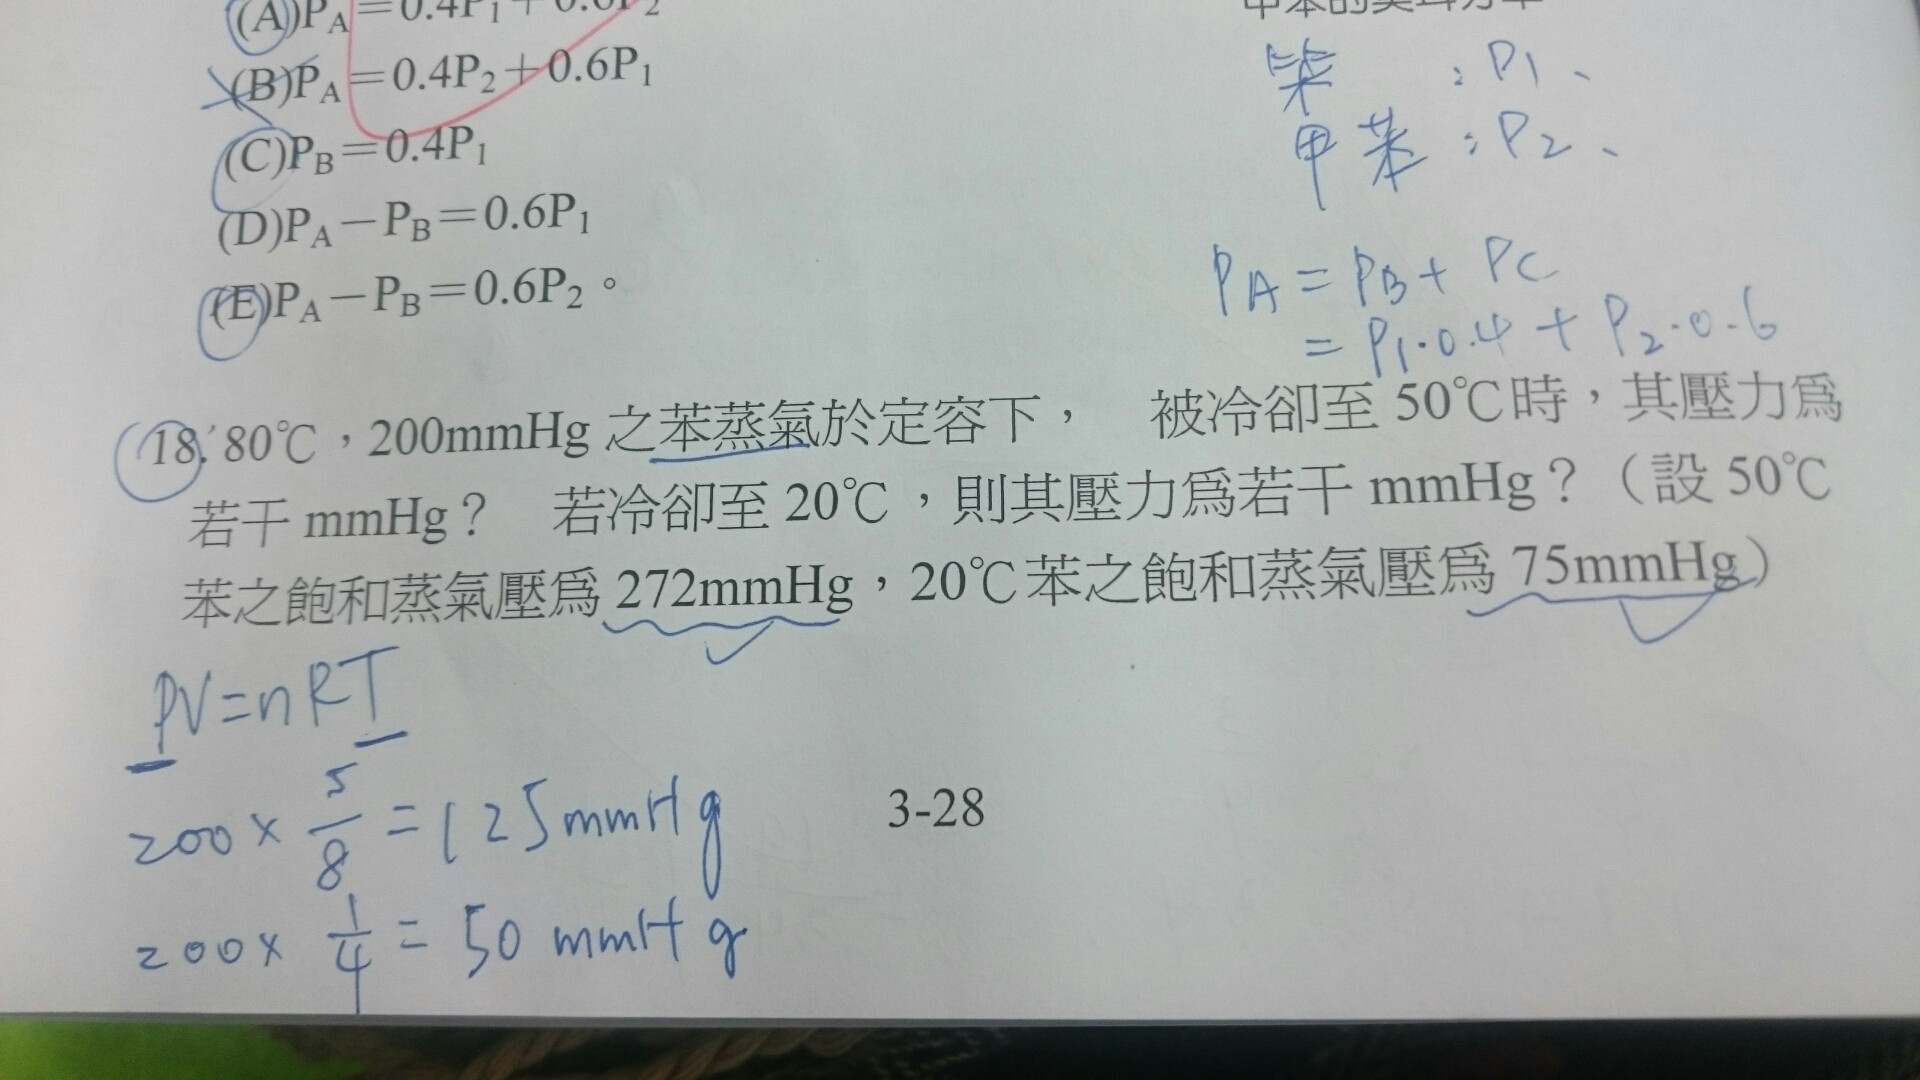 (A)P_A＝0.4P₁＋0.6P₂
(B)P_A＝0.4P₂＋0.6P₁
(C)P_B＝0.4P₁
(D)P_A－P_B＝0.6P₁
(E)P_A－P_B＝0.6P₂。
甲苯的莫耳分率
苯 : P1、
甲苯 : P2、
PA = PB + PC
= P₁·0.4 + P₂·0.6
18. 80℃，200mmHg 之苯蒸氣於定容下， 被冷卻至 50℃時，其壓力爲
若干 mmHg？ 若冷卻至 20℃，則其壓力爲若干 mmHg？（設 50℃
苯之飽和蒸氣壓爲 272mmHg，20℃苯之飽和蒸氣壓爲 75mmHg）
PV=nRT
200 × 5/8 = 125 mmHg
200 × 1/4 = 50 mmHg
3-28